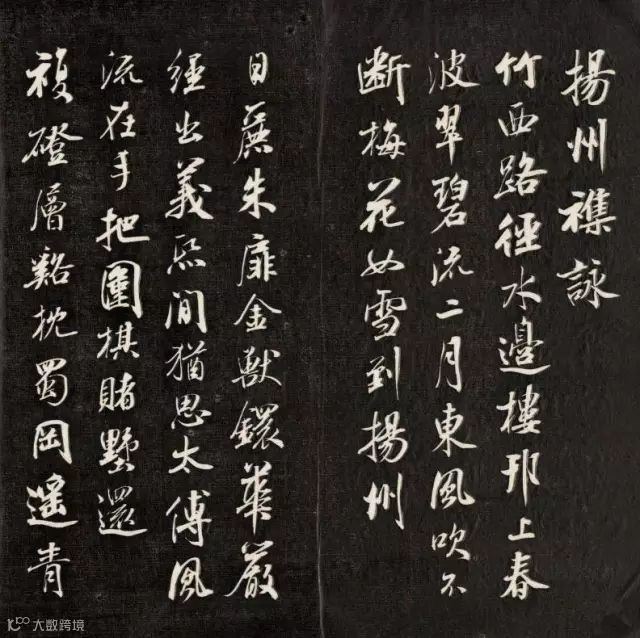 揚州襍詠
竹西路徑水邊樓邗上春
波翠碧流二月東風吹不
断梅花如雪到揚州
日麗朱扉金獸鐶華嚴
經出義熙間猶思太傅風
流在手把圍棋賭墅還
複磴層谿枕蜀岡遥青
大数跨境